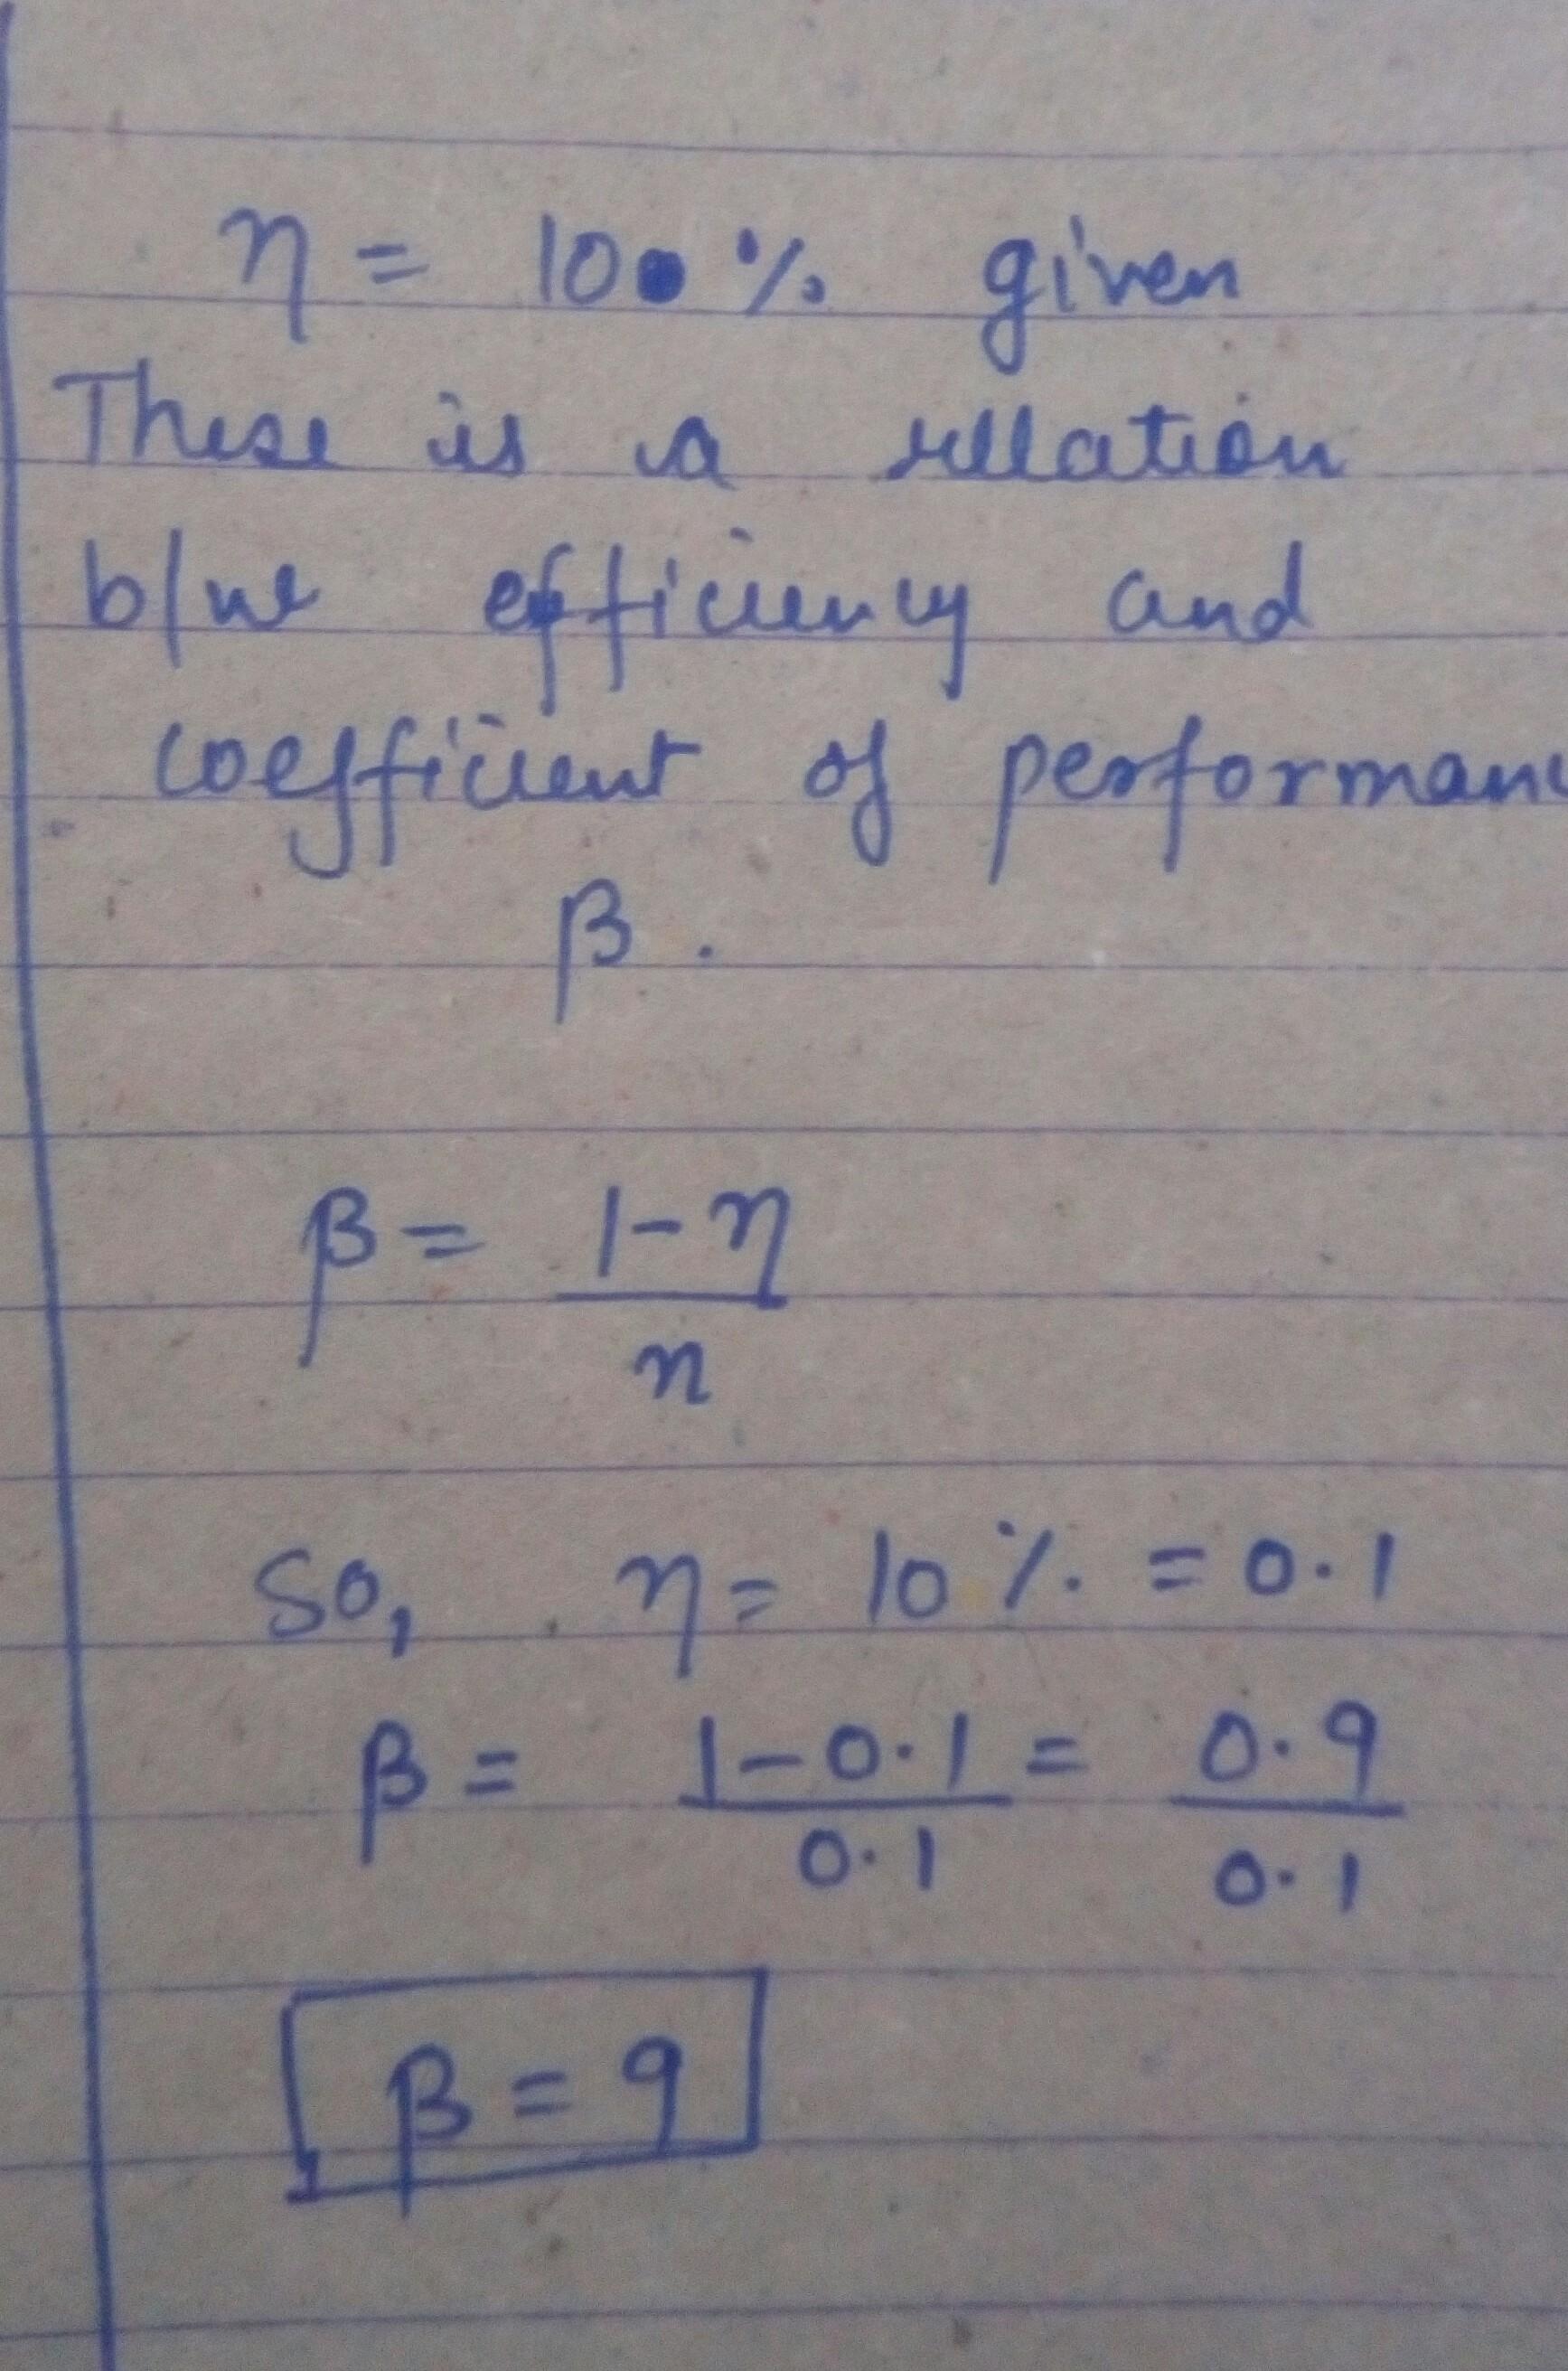 η = 100 % given
These is a rellation
b/w efficiency and
coefficient of performanc
β.
β = 1-η
n
So, η = 10 % = 0.1
β = 1-0.1 = 0.9
0.1 0.1
β = 9